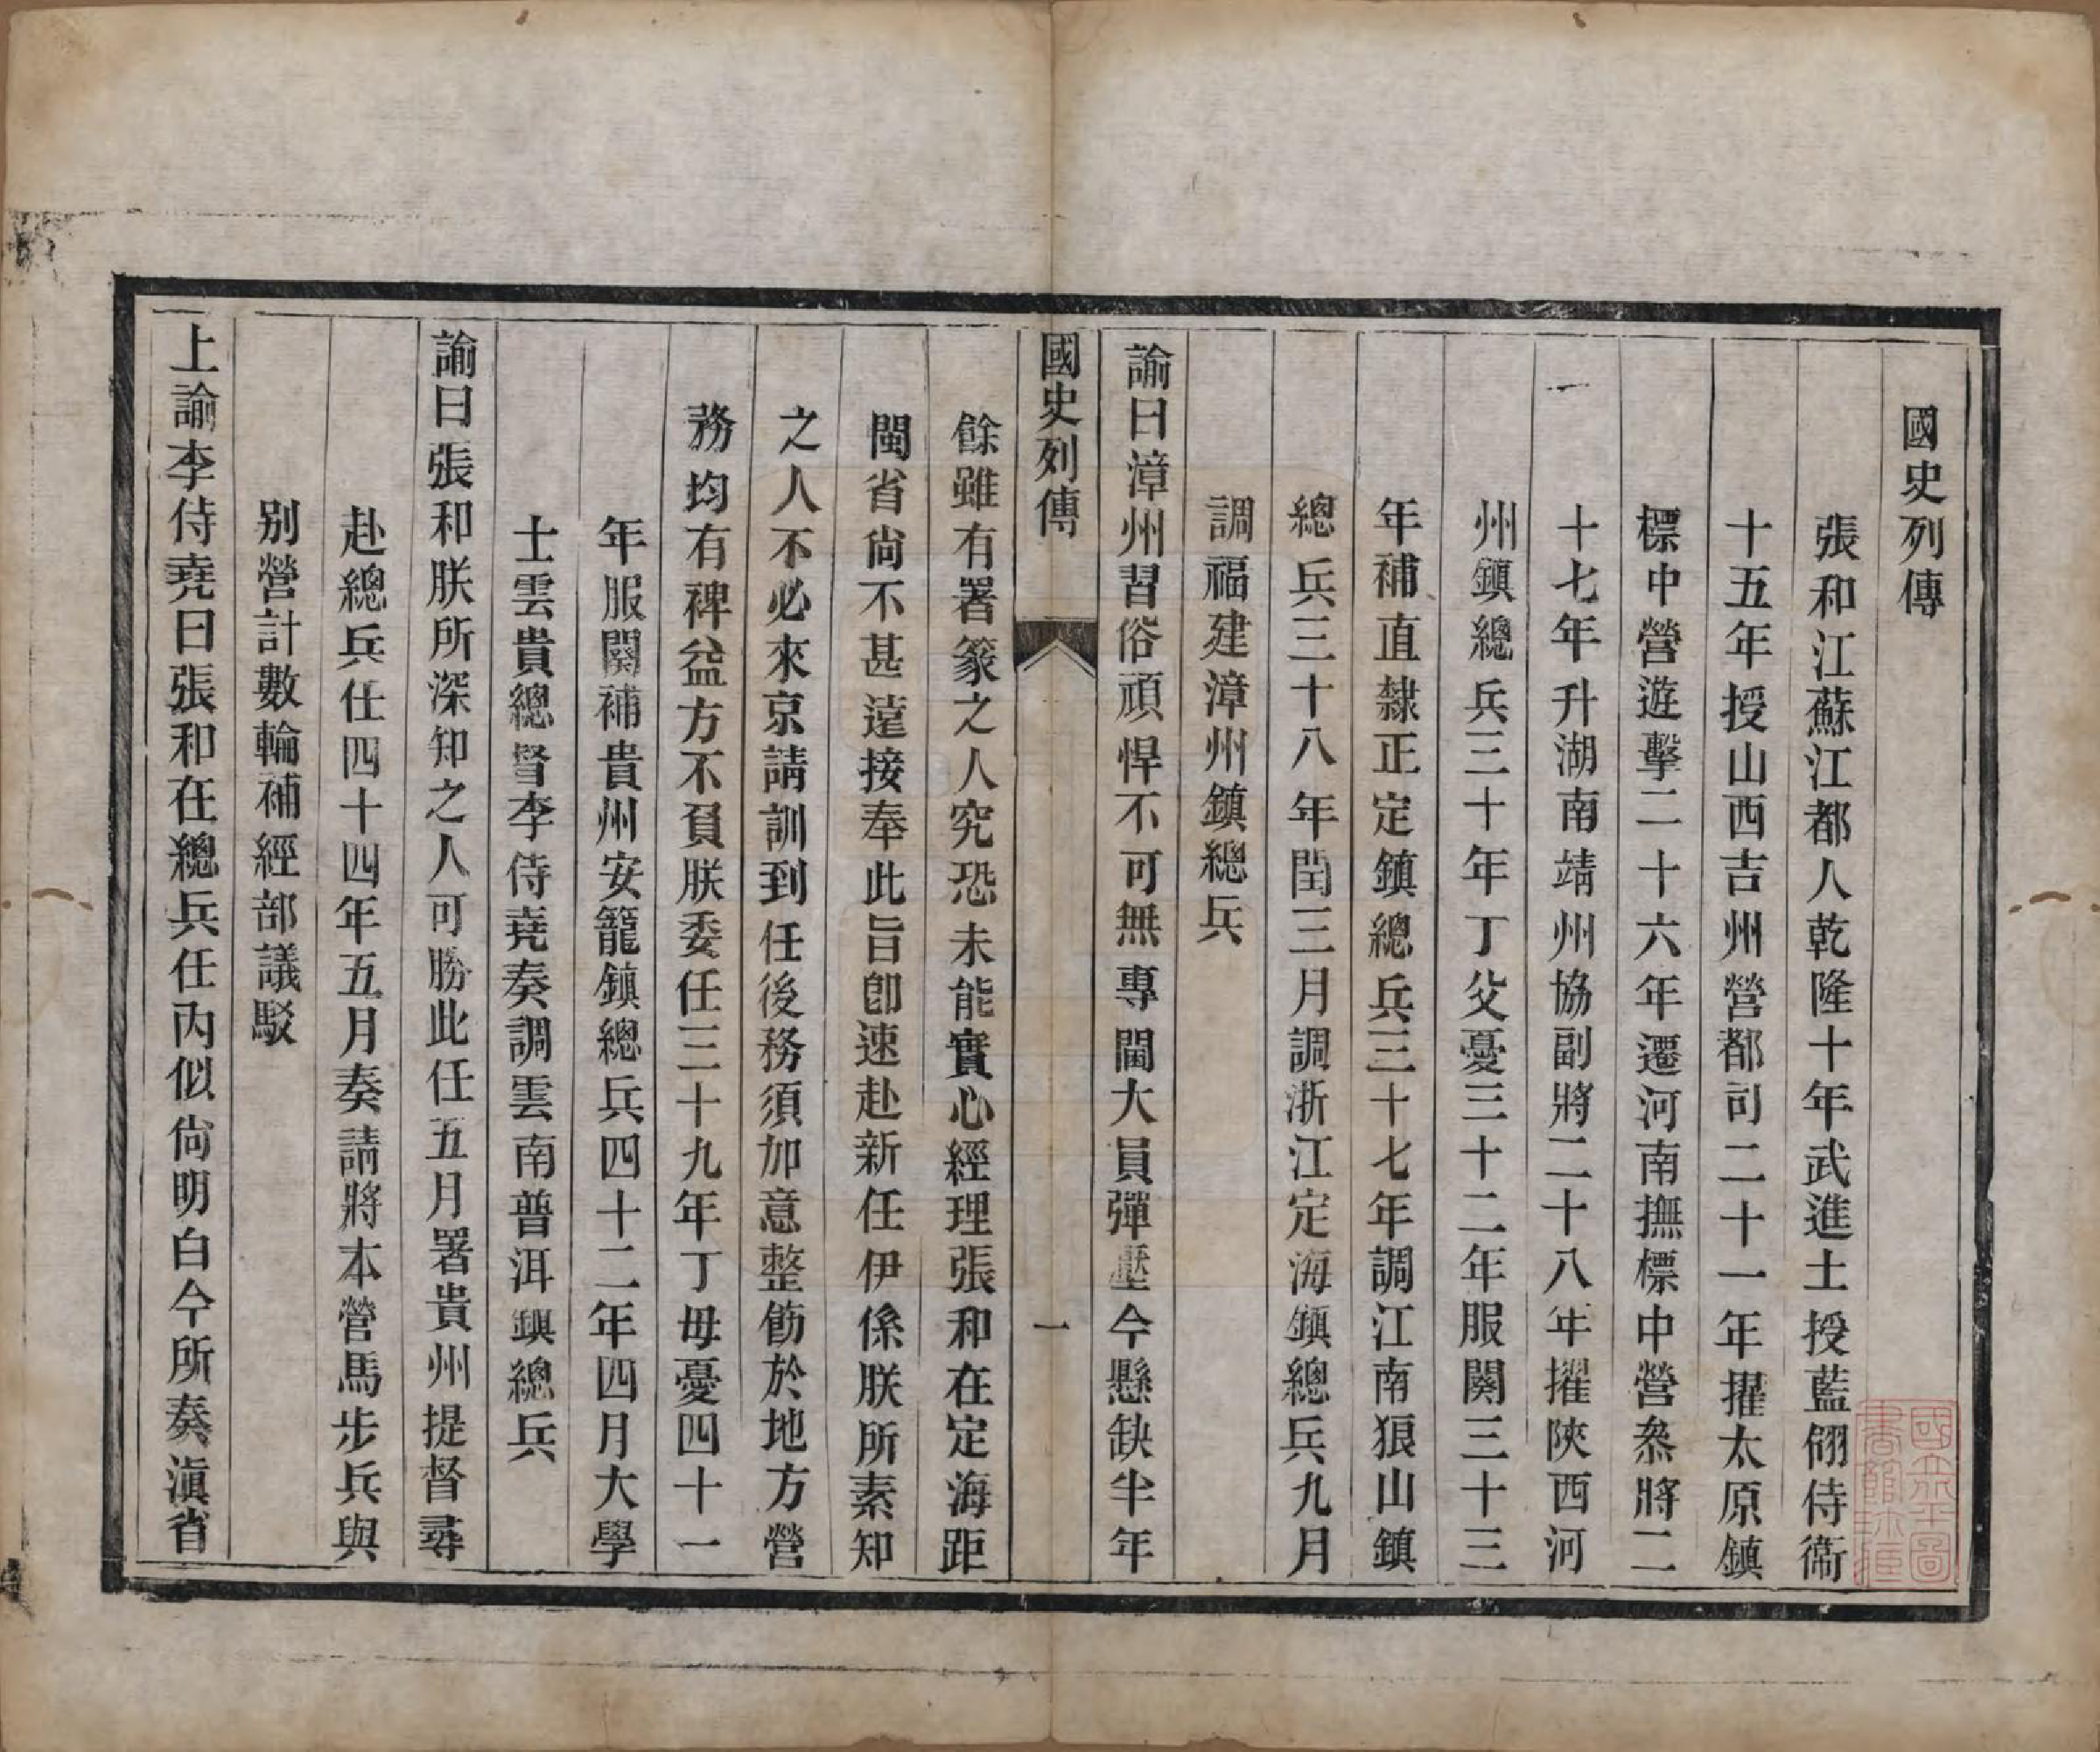 國史列傳
張和江蘇江都人乾隆十年武進士授藍翎侍衞
十五年授山西吉州營都司二十一年擢太原鎮
標中營遊擊二十六年遷河南撫標中營叅將二
十七年升湖南靖州協副將二十八年擢陝西河
州鎮總兵三十年丁父憂三十二年服闋三十三
年補直隸正定鎮總兵三十七年調江南狼山鎮
總兵三十八年閏三月調浙江定海鎮總兵九月
調福建漳州鎮總兵
諭曰漳州習俗頑悍不可無專閫大員彈壓今懸缺半年
國史列傳 一
餘雖有署篆之人究恐未能實心經理張和在定海距
閩省尙不甚遠接奉此旨卽速赴新任伊係朕所素知
之人不必來京請訓到任後務須加意整飭於地方營
務均有裨益方不負朕委任三十九年丁毋憂四十一
年服闋補貴州安籠鎮總兵四十二年四月大學
士雲貴總督李侍堯奏調雲南普洱鎮總兵
諭曰張和朕所深知之人可勝此任五月署貴州提督尋
赴總兵任四十四年五月奏請將本營馬步兵與
別營計數輪補經部議駁
上諭李侍堯曰張和在總兵任內似尙明白今所奏滇省
國立北平圖書館珍藏